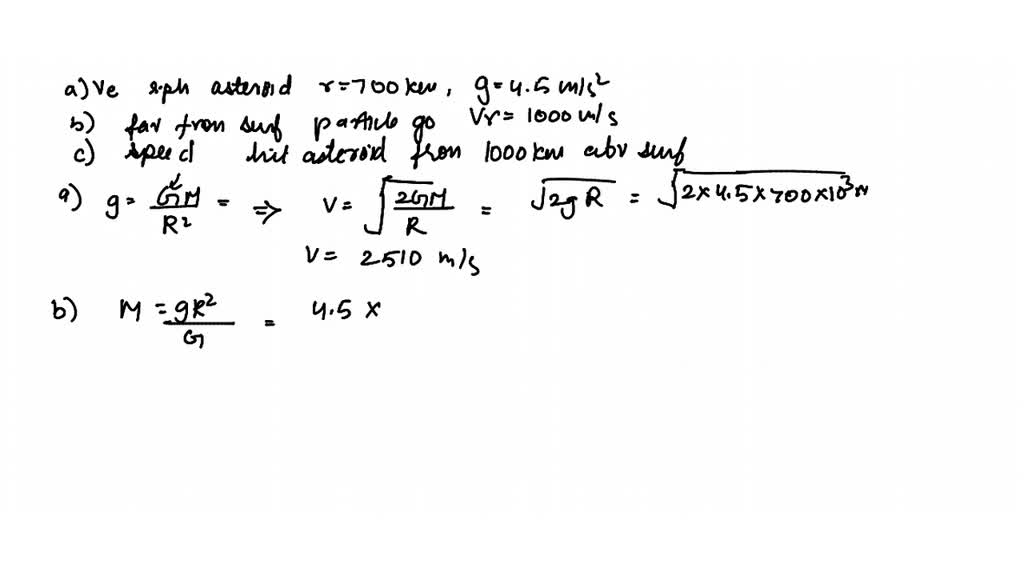 a) Ve sph asteroid r=700 km, g=4.5 m/s²
b) far from surf particle go Vr= 1000 m/s
c) speed hit asteroid from 1000 km abv surf
a) g= GM/R² = ⇒ V= √(2GM/R) = √(2gR) = √(2×4.5×700×10³ m
V= 2510 m/s
b) M = gR²/G = 4.5 ×